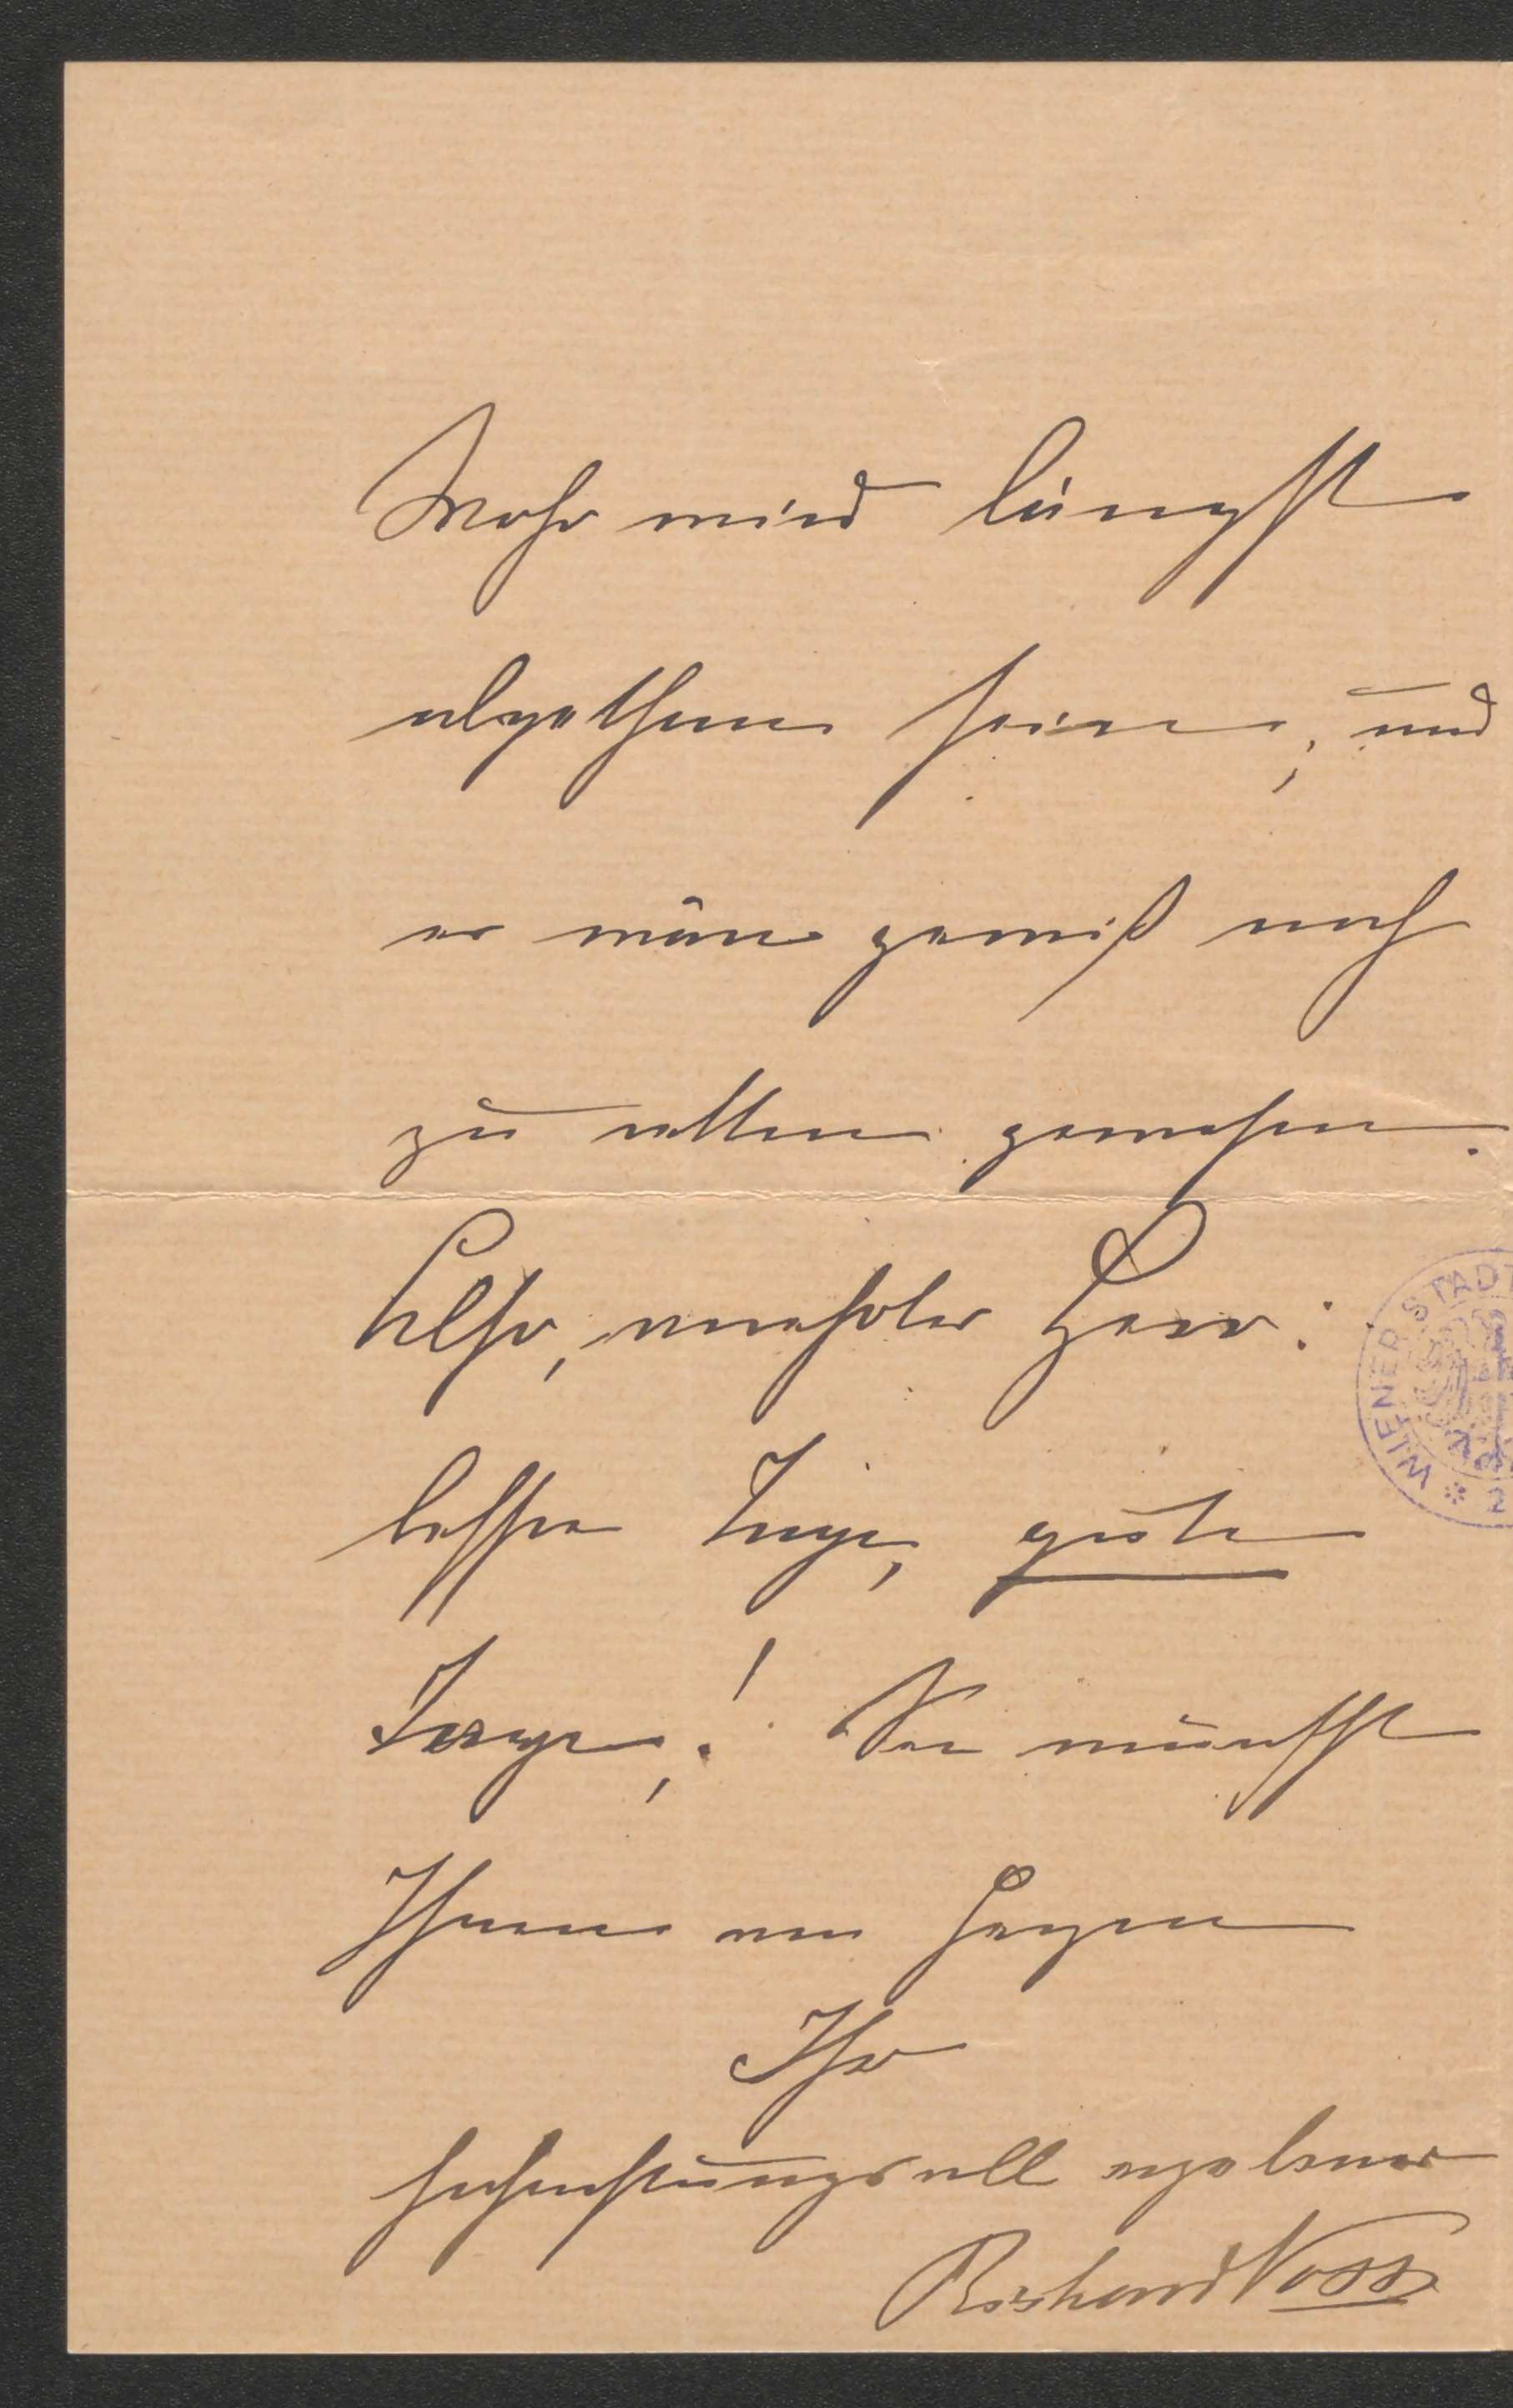 Mohr wird längst
abgethan sein, und
er wäre gewiß noch
zu retten gewesen.
Also, verehrter Herr:
bessre Tage, gute
Tage,! Das wünscht
Ihnen von Herzen
Ihr
hochachtungsvoll ergebener
Richard Voss
WIENER STADT
2